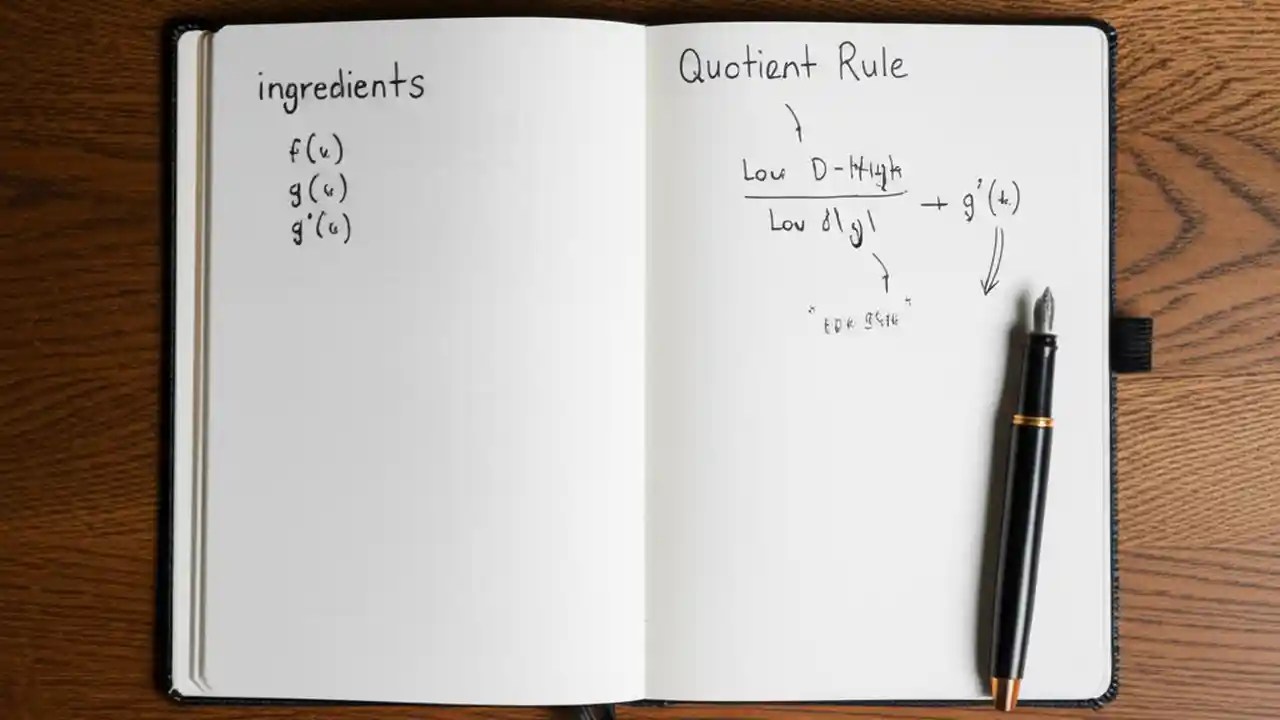 ingredients
f(x)
g(x)
g'(x)
Quotient Rule
Low D-High
Low
→ g'(x)